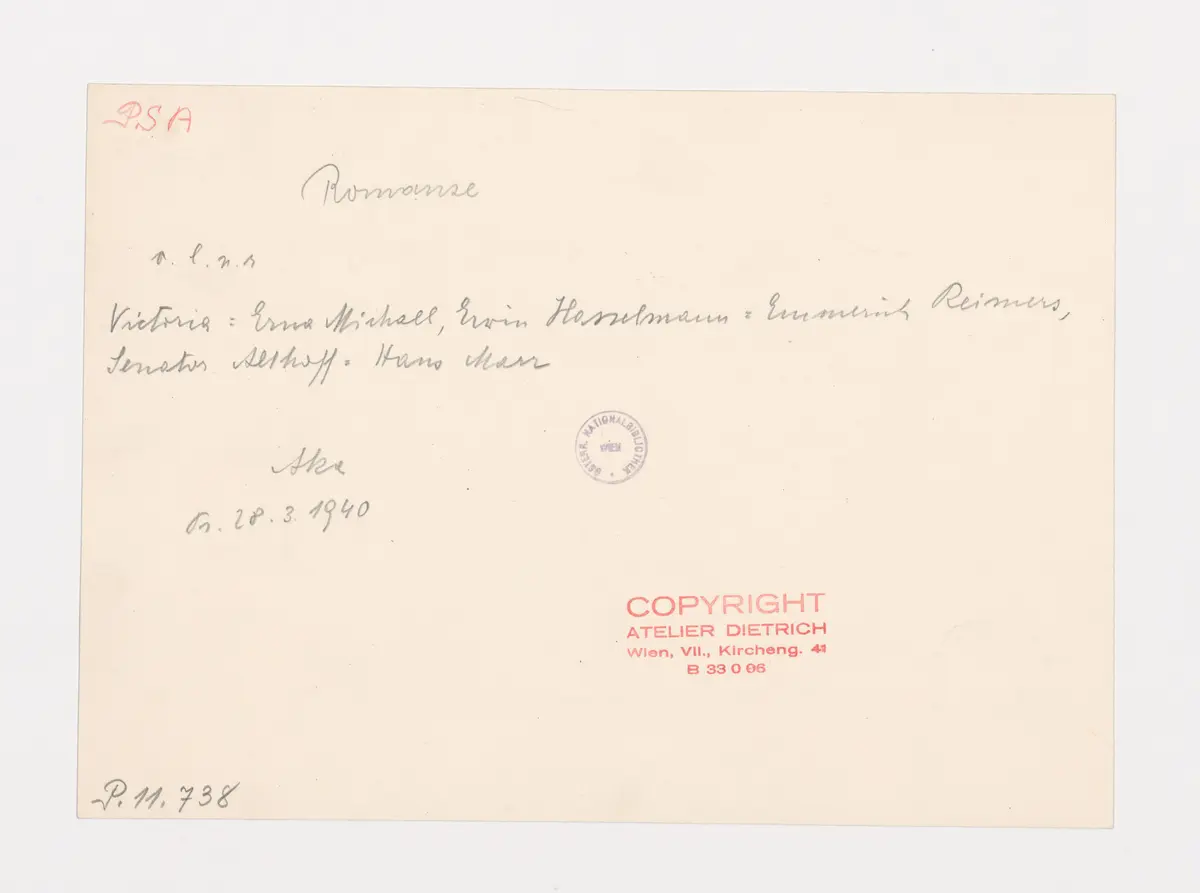 PSA
Romanze
v. l. n. r
Victoria = Erna Michall, Erwin Hasselmann = Emmerich Reimers,
Senator Althoff = Hans Marr
Aka
Pr. 28. 3. 1940
ÖSTERR. NATIONALBIBLIOTHEK
WIEN
COPYRIGHT
ATELIER DIETRICH
Wien, VII., Kircheng. 41
B 33 0 06
P. 11. 738